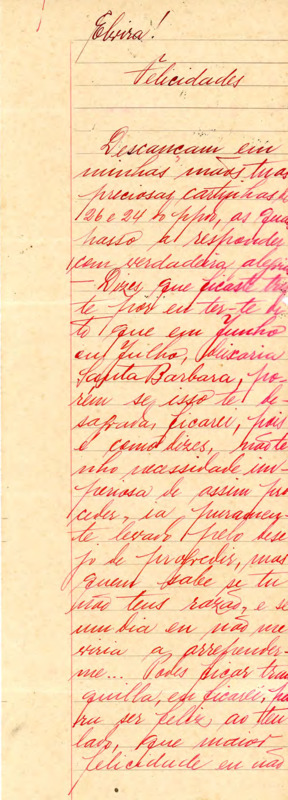 Elvira!
Felicidades
Descançam em
minhas mãos tuas
preciosas cartinhas de
26 e 24 do ppdo, as qua
passo a responder
com verdadeira alegria
— Dizes que ficaste tris
te por eu ter-te di
to que em Junho
ou Julho, deixaria
Santa Barbara, po-
rém se isso te de-
sagrada, ficarei, pois
é como dizes, não te
nho necessidade im-
periosa de assim pro
ceder, ia puramen-
te levado pelo dese
jo de progredir, mas
quem sabe se tu
não tens razão, e se
um dia eu não me
viria a arrepender-
me... Podes ficar tran
quilla, eu ficarei, pa
ra ser feliz ao teu
lado, que maior
felicidade eu não